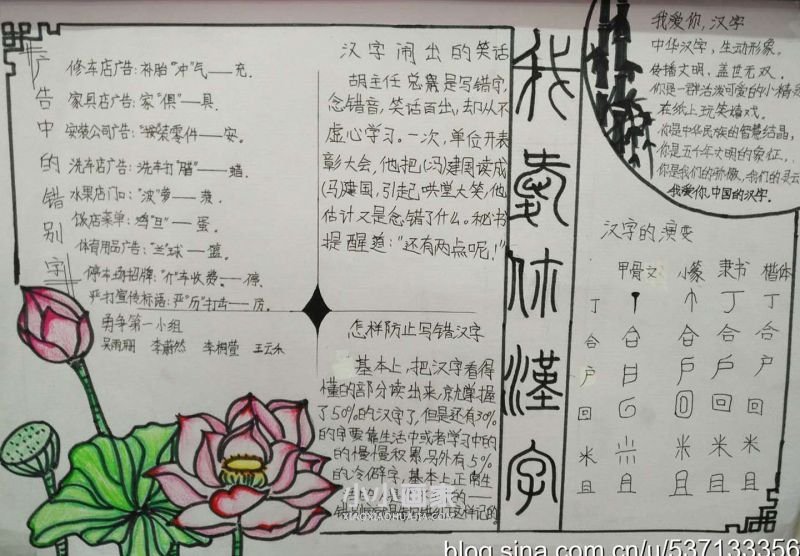 广告中的错别字
修车店广告:补胎“冲”气——充.
家具店广告:家“俱”——具.
安装公司广告:“按”装零件——安。
洗车店广告:洗车打“腊”——蜡.
水果店门口:“波”萝——菠.
饭店菜单:鸡“旦”——蛋.
体育用品广告:“兰”球——篮.
停车场招牌:“仃”车收费.——停.
严打宣传标语:严“历”打击——厉.
勇争第一小组
汉字闹出的笑话
胡主任总是写错字,
念错音,笑话百出,却从不
虚心学习。一次,单位开表
彰大会,他把(冯)建国读成
(马)建国,引起哄堂大笑,他
估计又是念错了什么。秘书
提醒道:“还有两点呢!”
怎样防止写错汉字
基本上,把汉字看得
懂的部分读出来,你就掌握
了50%的汉字了,但是还有30%
的字要靠生活中或者学习中的
的慢慢积累.另外有5%
的冷僻字,基本上正常生
我爱你漢字
我爱你,汉字
中华汉字,生动形象。
传播文明,盖世无双.
你是一群活泼可爱的小精灵
在纸上玩笑嬉戏.
你是中华民族的智慧结晶,
你是五千年文明的象征,
你是我们的骄傲,我们的灵云
我爱你,中国的汉字.
汉字的演变
甲骨文 小篆 隶书 楷体
丁 丁 丁
合 合 合 合
户 户 户 户
回 回 回 回
米 米 米 米
且 且 且 且
小小画家
XIAOXIAOHUAJIA.COM
blog.sina.com.cn/u/537133356